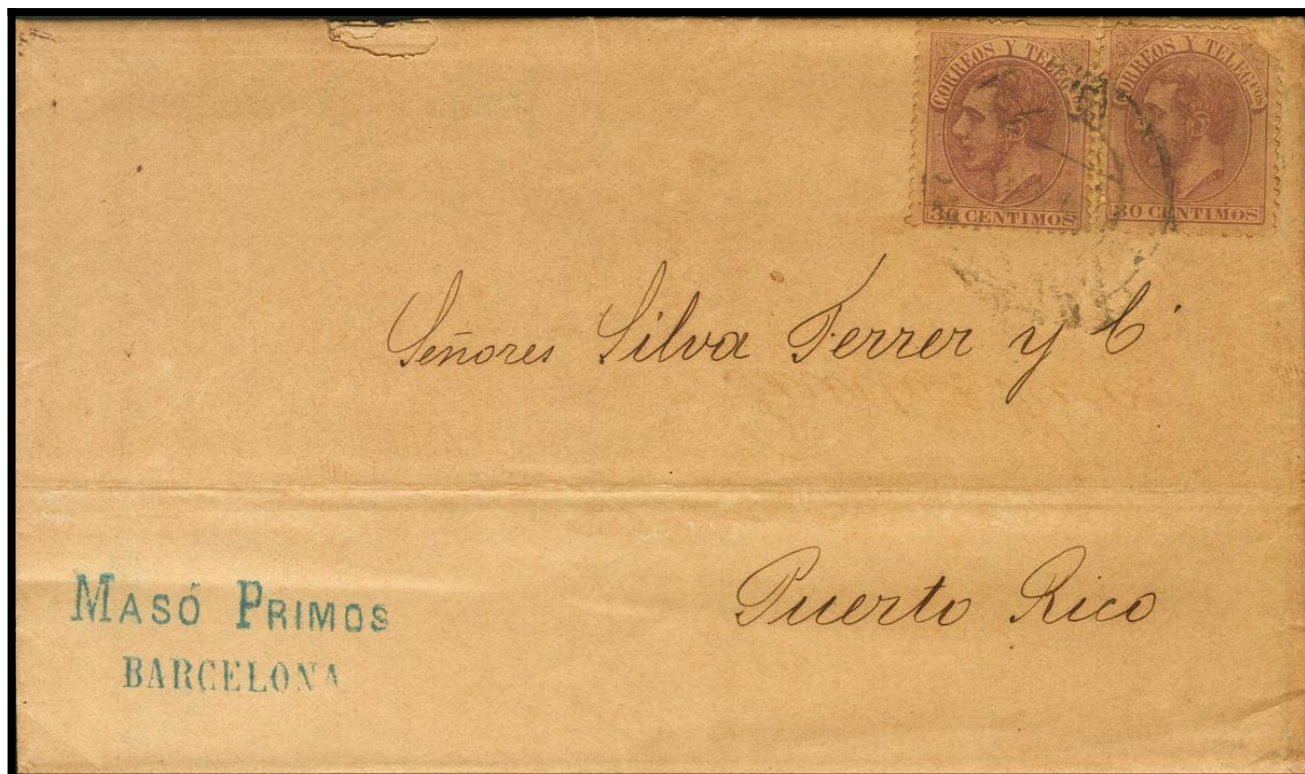 CORREOS Y TELEGFOS
30 CENTIMOS
CORREOS Y TELEGFOS
30 CENTIMOS
Señores Silva Ferrer y Cª
Puerto Rico
MASÓ PRIMOS
BARCELONA